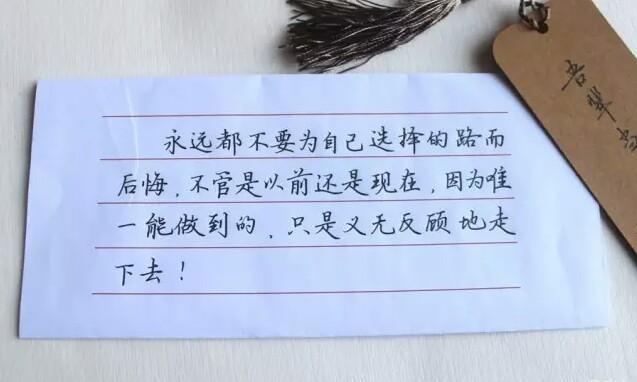 永远都不要为自己选择的路而
后悔，不管是以前还是现在，因为唯
一能做到的，只是义无反顾地走
下去！
吾辈当